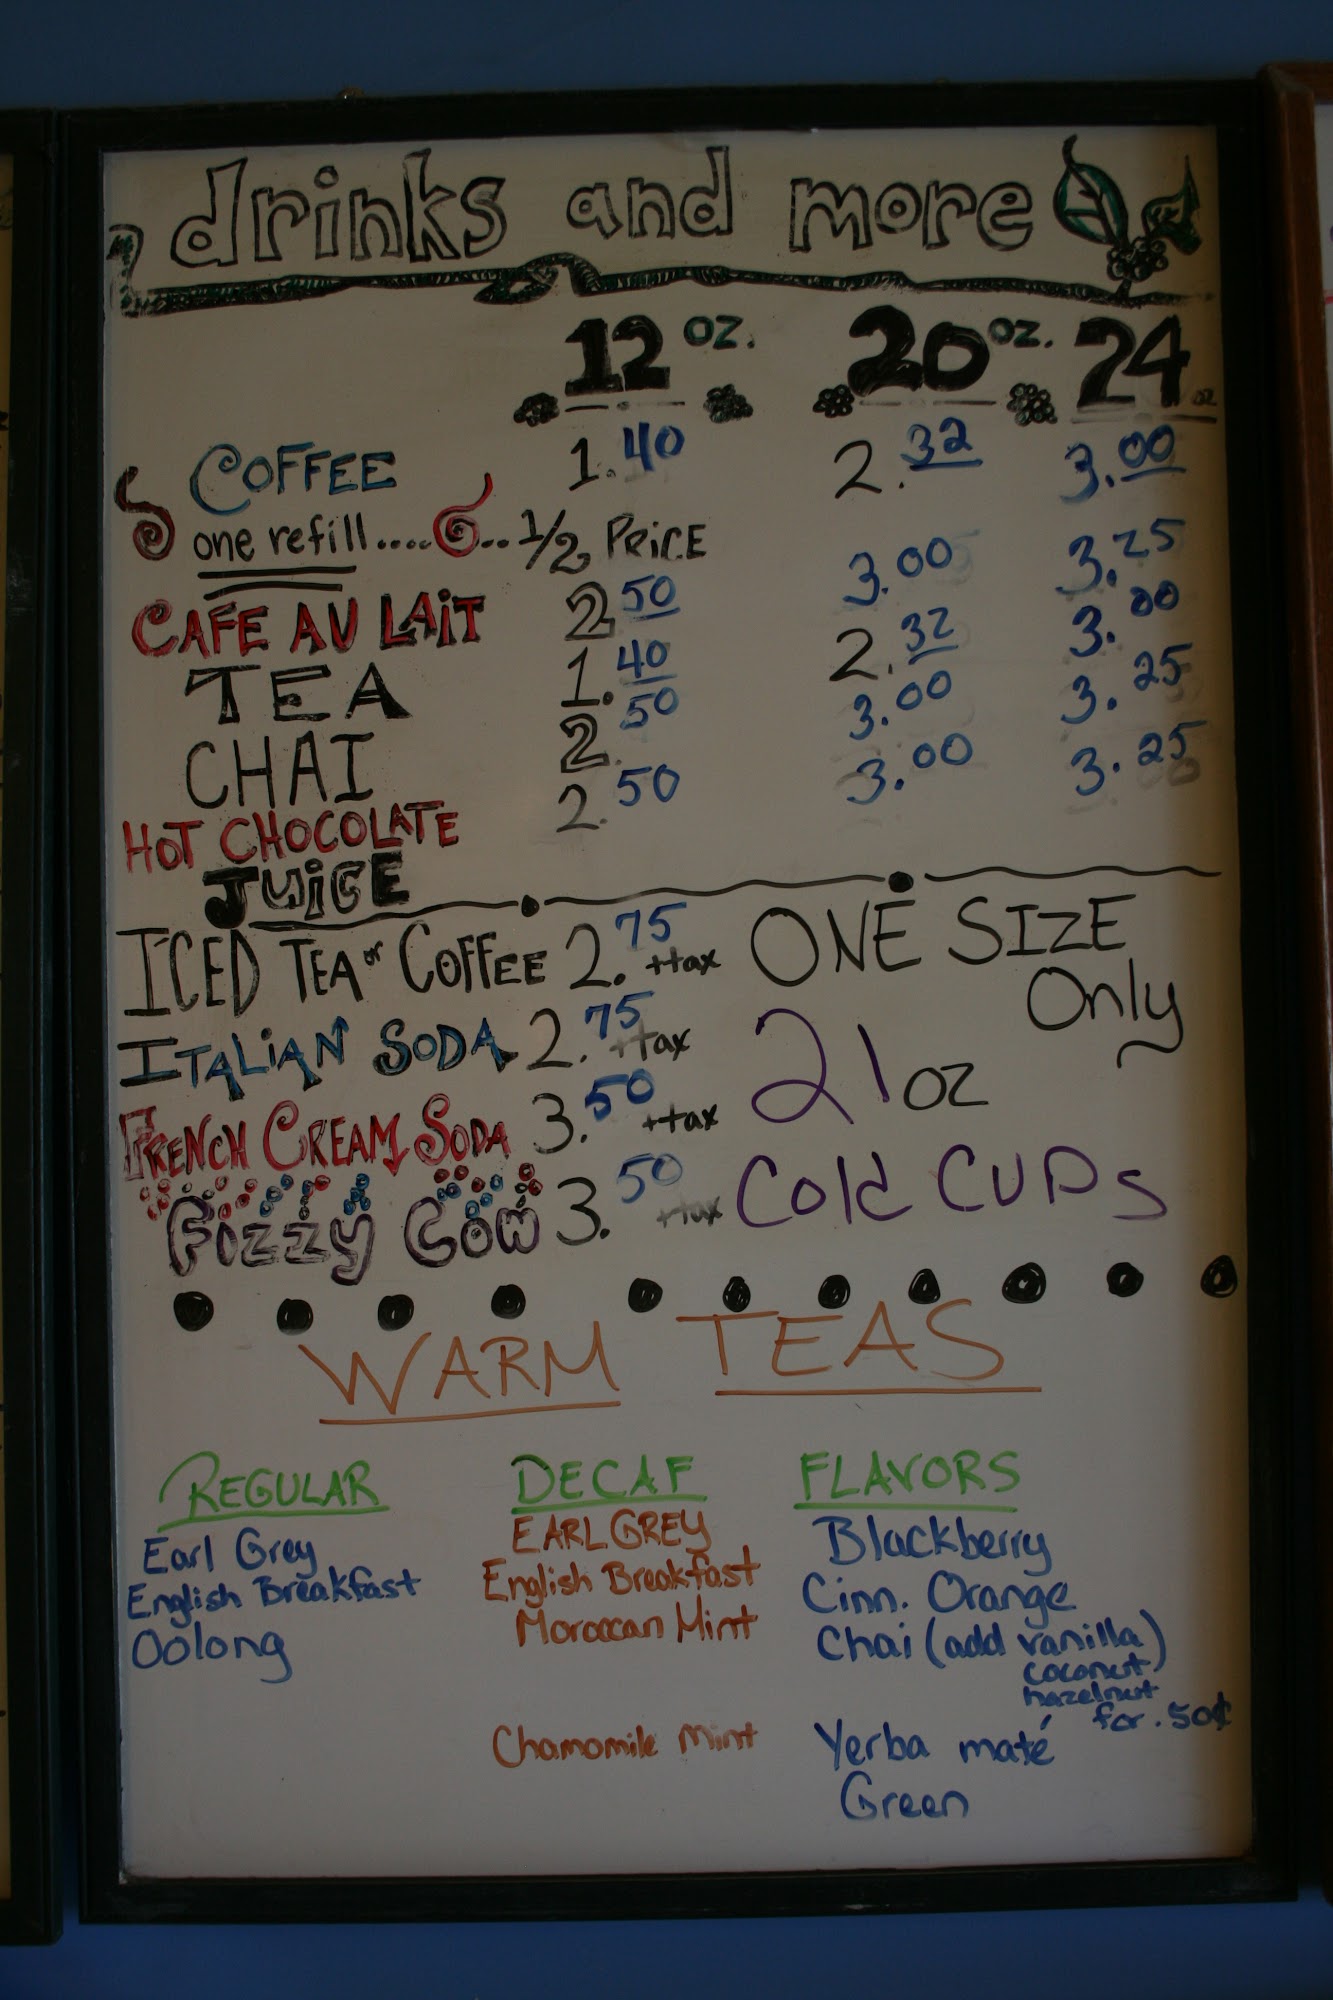 drinks and more
12 oz. 20 oz. 24 oz
COFFEE 1.40 2.32 3.00
one refill..... .. 1/2 PRICE
CAFE AU LAIT 2.50 3.00 3.25
TEA 1.40 2.32 3.00
CHAI 2.50 3.00 3.25
HOT CHOCOLATE 2.50 3.00 3.25
JUICE
ICED TEA or COFFEE 2.75 +tax ONE SIZE
Only
ITALIAN SODA 2.75 +tax 21 oz
FRENCH CREAM SODA 3.50 +tax
Fizzy Cow 3.50 +tax Cold CUPs
WARM TEAS
REGULAR DECAF FLAVORS
Earl Grey EARL GREY Blackberry
English Breakfast English Breakfast Cinn. Orange
Oolong Moroccan Mint Chai (add vanilla)
coconut
hazelnut
for .50¢
Chamomile Mint Yerba maté
Green